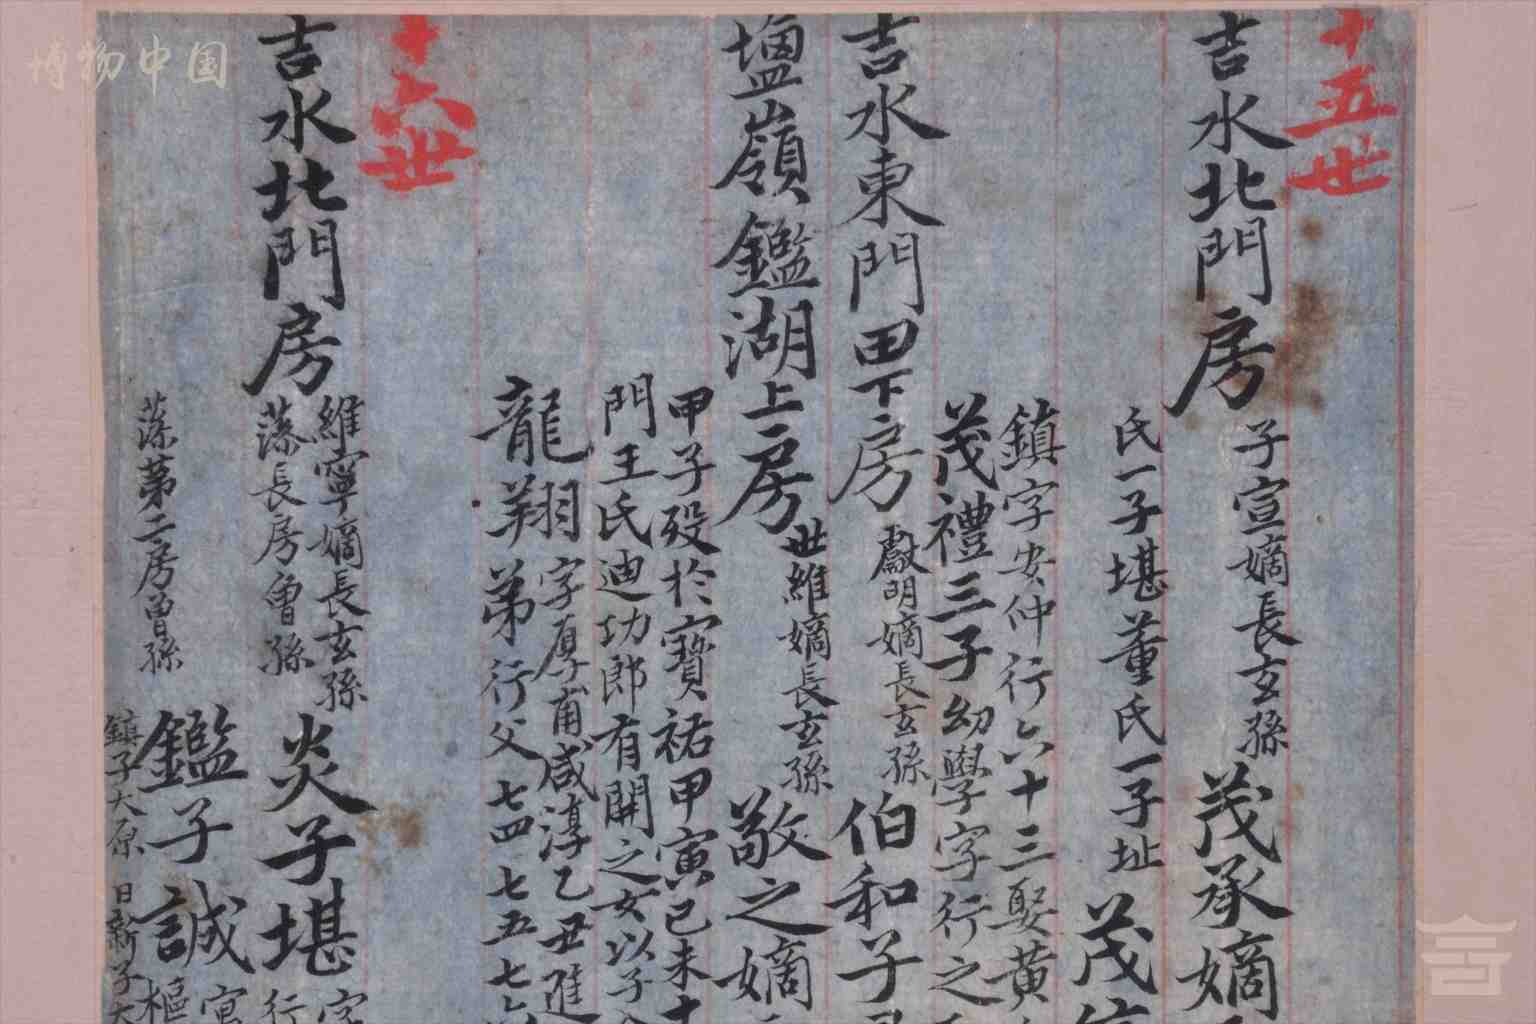 博物中国
十五世
吉水北門房
子宣嫡長玄孫
茂承嫡
氏一子堪董氏一子址
茂
鎮字安仲行六十三娶黄
茂禮三子幼學字行之
吉水東門田下房
獻明嫡長玄孫
伯和子
塩嶺鑑湖上房
世維嫡長玄孫
敬之嫡
甲子殁於寳祐甲寅已未十
門王氏迪功郎有開之女以子
龍翔字厚甫咸淳乙丑進
弟行父七四七五七六
十六世
吉水北門房
維寧嫡長玄孫
藻長房曾孫
炎子堪字
行
藻第二房曾孫
鑑子誠
樞
鎮子大原
日新子大